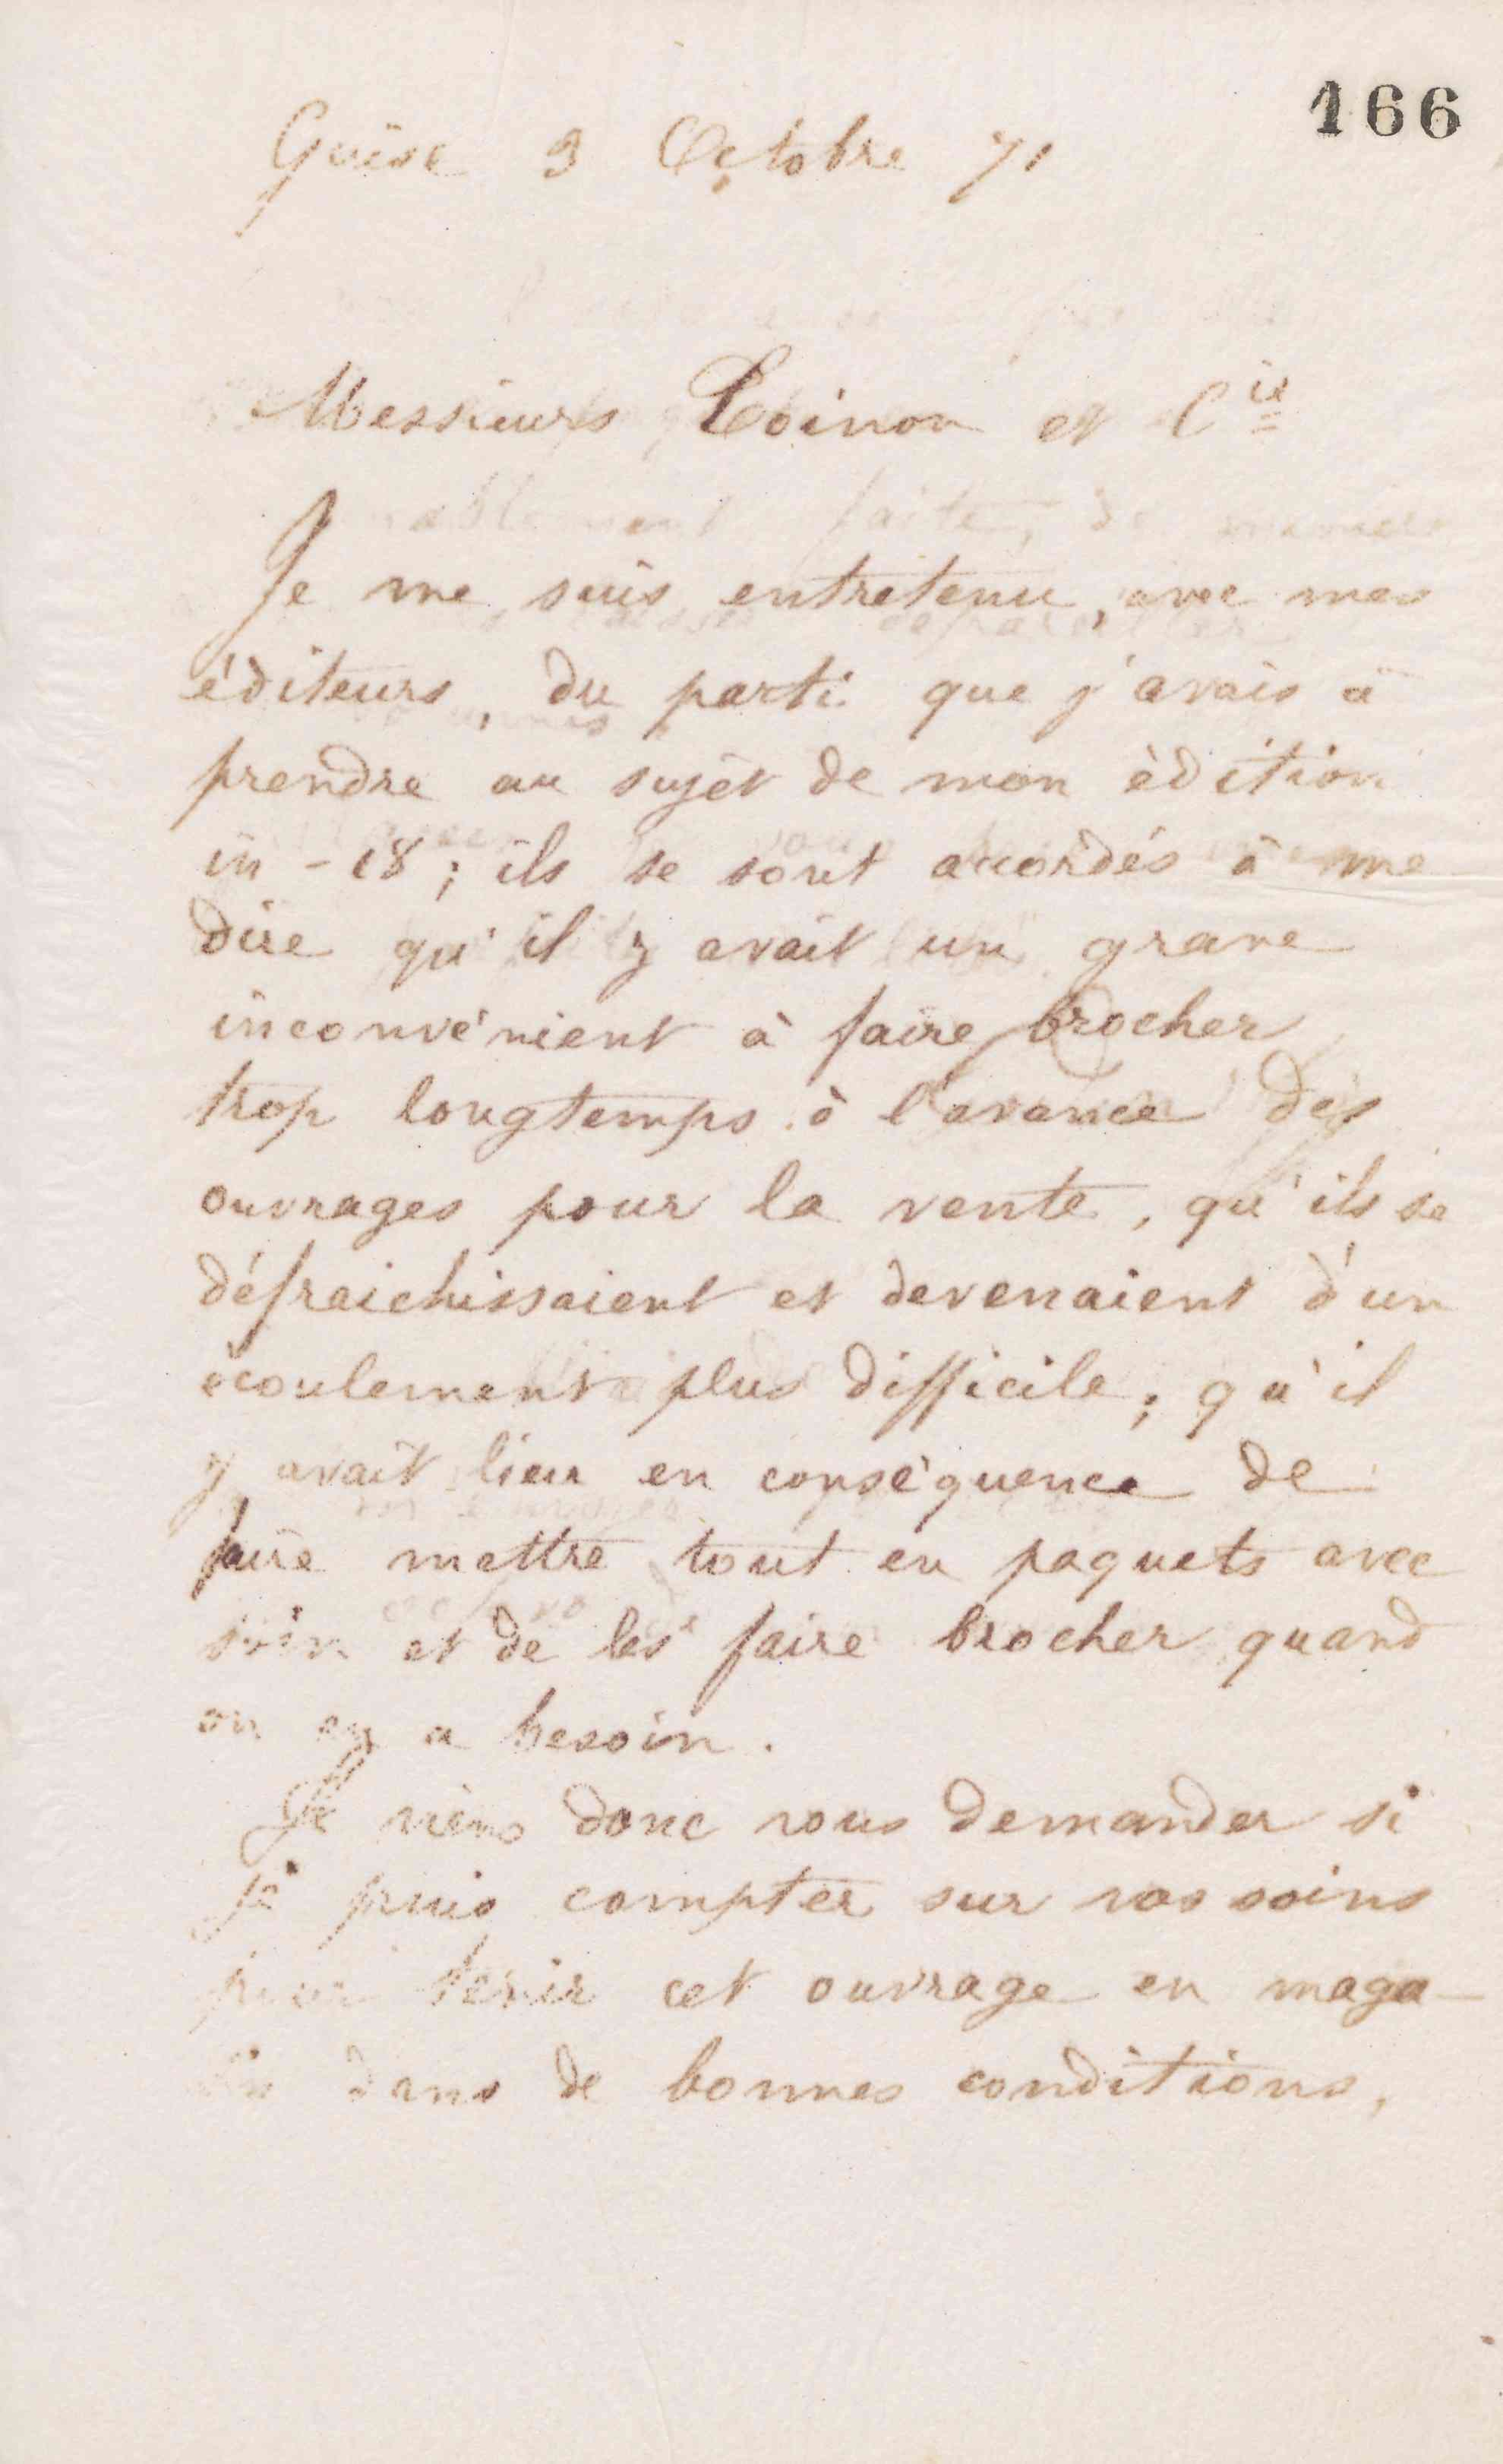 166
Guise 9 Octobre 71
Messieurs Poinon et Cie
Je me suis entretenu, avec mes
éditeurs, du parti que j'avais à
prendre au sujet de mon édition
in-18; ils se sont accordés à me
dire qu'il y avait un grave
inconvénient à faire brocher
trop longtemps à l'avance des
ouvrages pour la vente, qu'ils se
défraichissaient et devenaient d'un
écoulement plus difficile; qu'il
y avait lieu en conséquence de
faire mettre tout en paquets avec
soin et de les faire brocher quand
on en a besoin.
Je viens donc vous demander si
je puis compter sur vos soins
pour tenir cet ouvrage en maga-
sin dans de bonnes conditions,